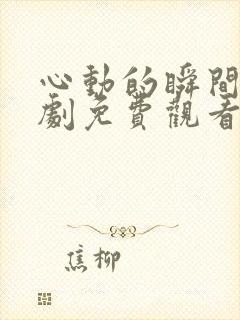 心動的瞬間
劇免費觀看
焦柳